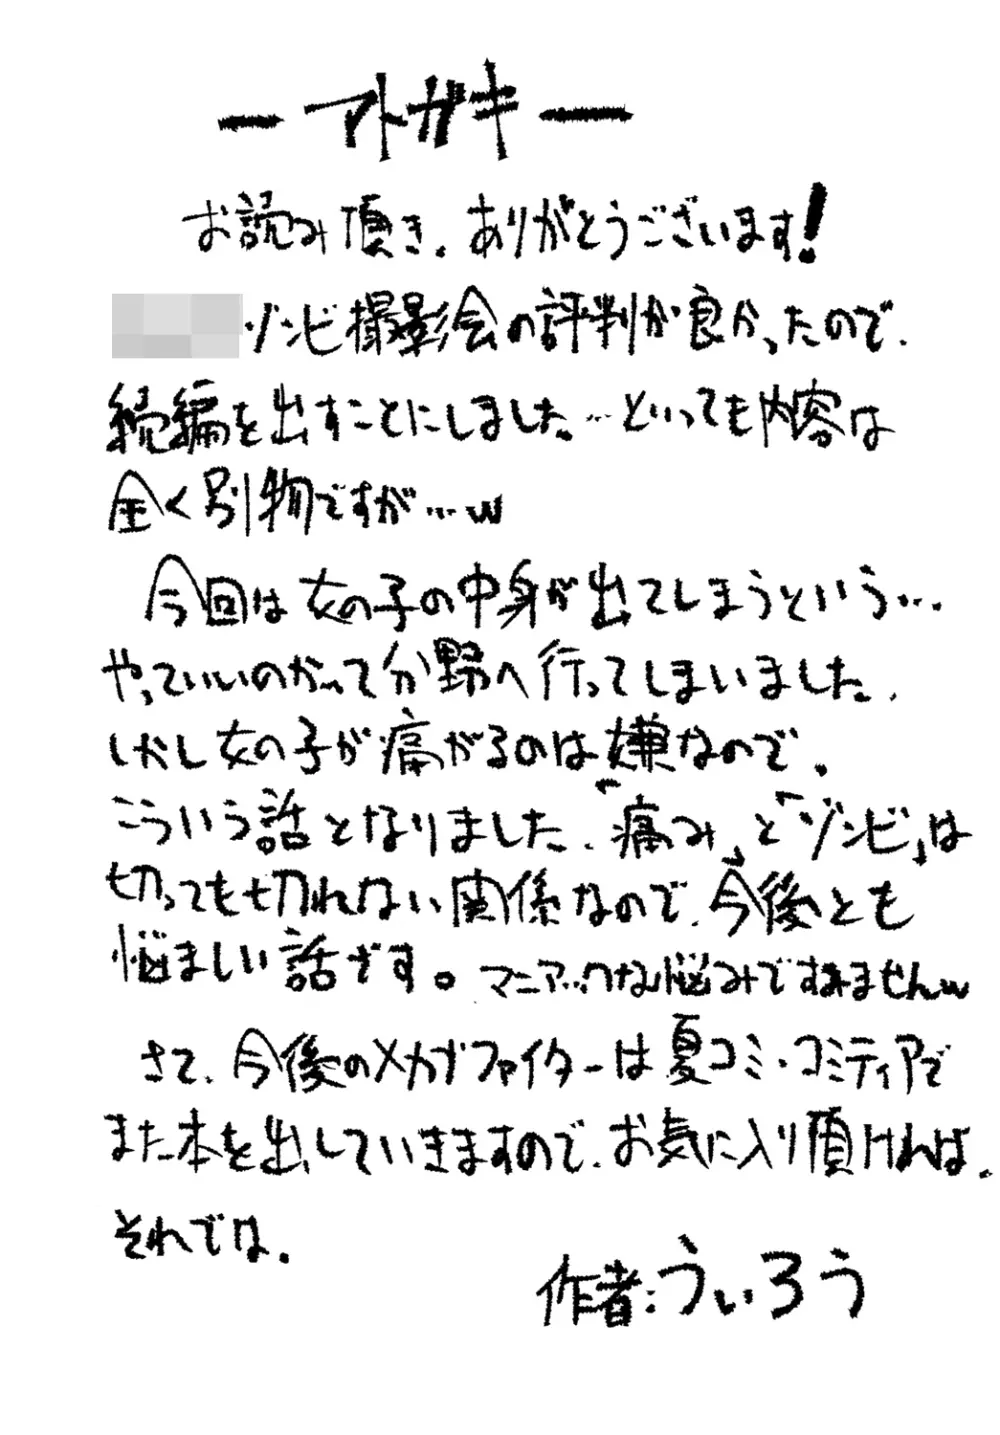 ーアトガキー
お読み頂き、ありがとうございます!
ゾンビ撮影会の評判が良かったので、
続編を出すことにしました…といっても内容は
全く別物ですが…w
今回は女の子の中身が出てしまうという…
やっていいのかって分野へ行ってしまいました、
しかし女の子が痛がるのは嫌なので、
こういう話となりました、「痛み」と「ゾンビ」は
切っても切れない関係なので、今後とも
悩ましい話です。マニアックな悩みですみませんw
さて、今後のメカブファイターは夏コミ・コミティアで
また本を出していきますので、お気に入り頂ければ、
それでは、
作者:うぃろう